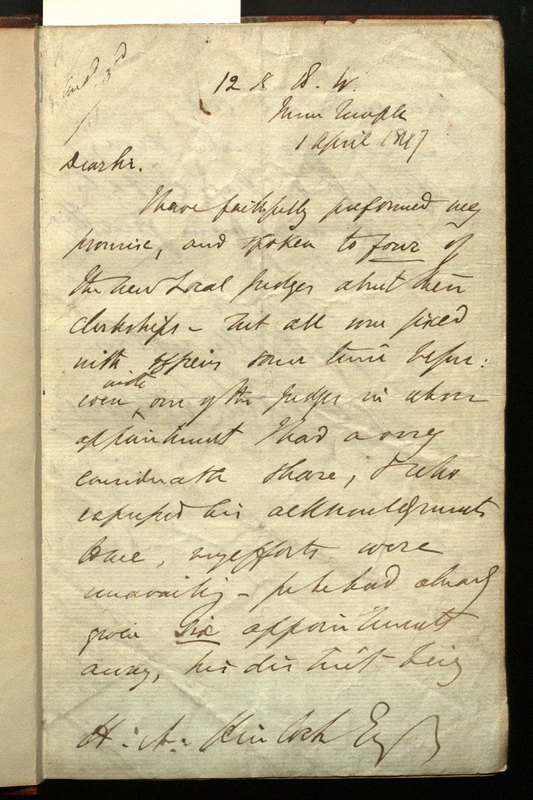 12 K B. W.
Inner Temple
1 April 1847
Dear Sir.
I have faithfully preformed my
promise, and spoken to four of
the new Local Judges about their
clerkships – but all were fixed
with offices some time before:
even with one of the Judges in whose
appointment I had a very
considerable share, & who
expressed his acknowledgments
to me, my efforts were
unavailing – for he had already
given six appointments
away, his district being
H: A: Kinloch Esq